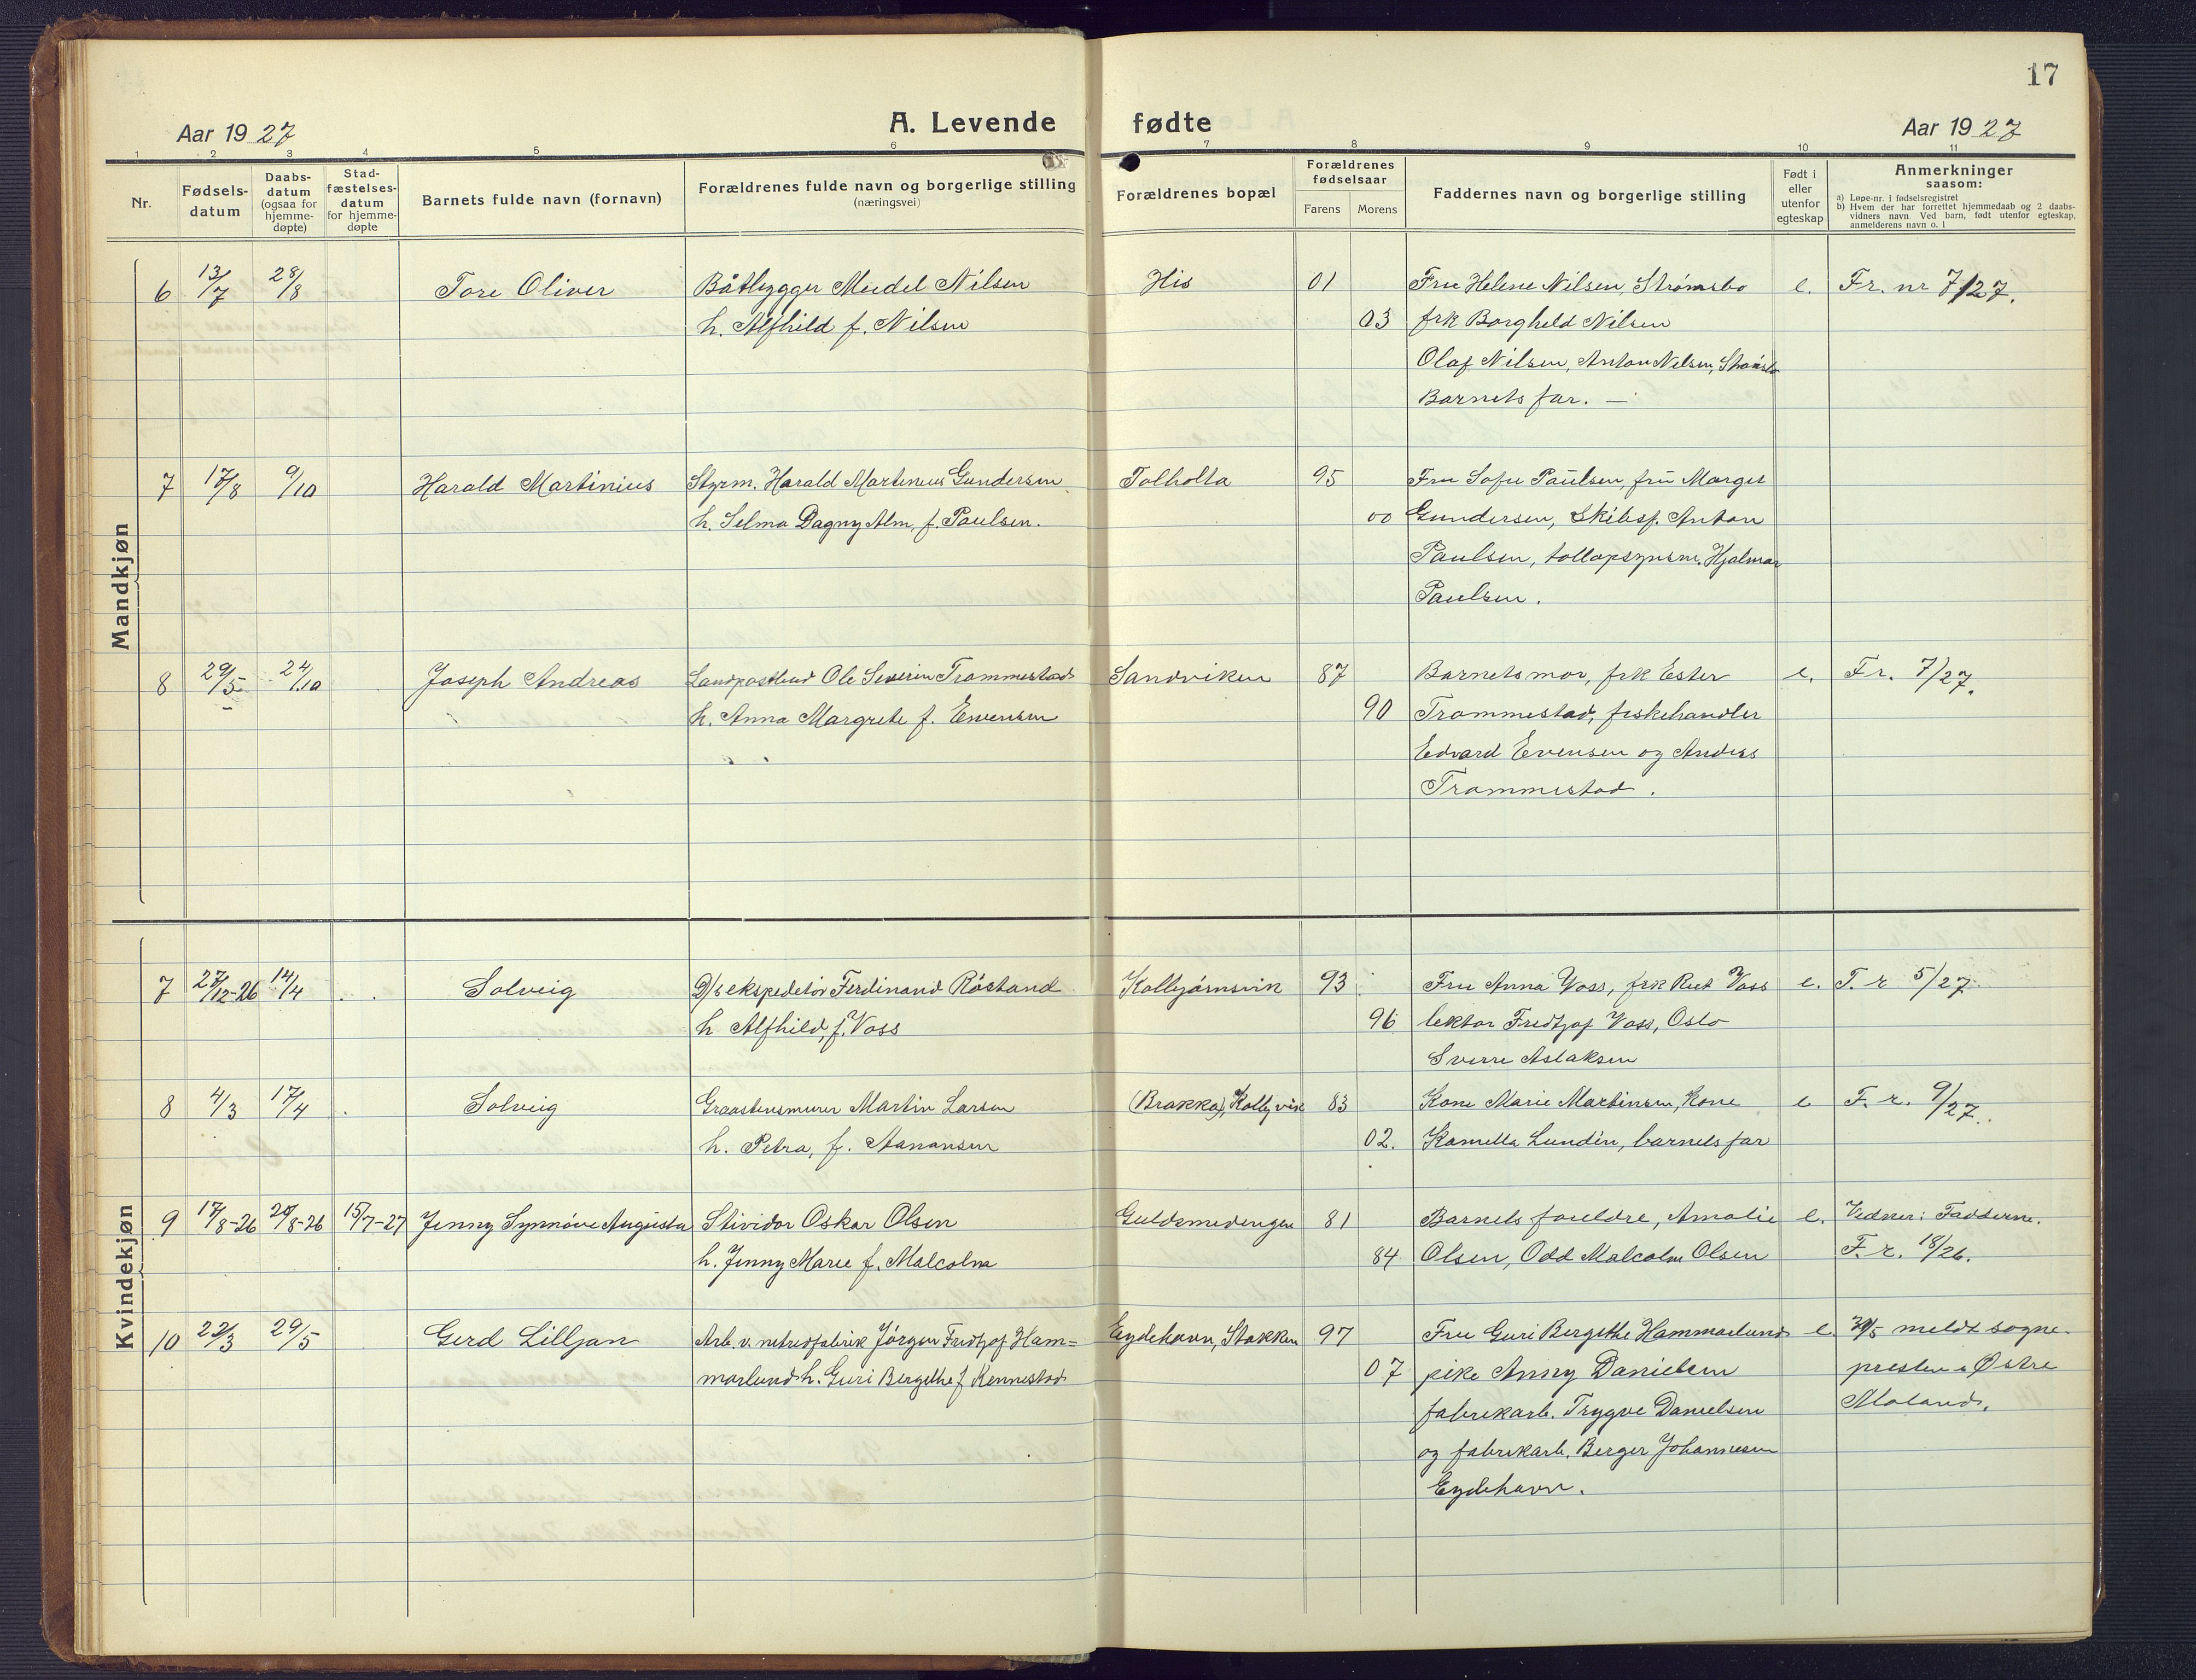 17
Aar 1927
A. Levende fødte
Aar 1927
1 2 3 4 5 6 7 8 9 10 11
Nr.
Fødselsdatum
Daabsdatum (ogsaa for hjemmedøpte)
Stadfæstelsesdatum for hjemmedøpte
Barnets fulde navn (fornavn)
Forældrenes fulde navn og borgerlige stilling (næringsvei)
Forældrenes bopæl
Forældrenes fødselsaar
Farens Morens
Faddernes navn og borgerlige stilling
Født i eller utenfor egteskap
Anmerkninger saasom:
a) Løpe-nr. i fødselsregistret
b) Hvem der har forrettet hjemmedaab og 2 daabsvidners navn. Ved barn, født utenfor egteskap, anmelderens navn o. l
Mandkjøn
6 13/7 28/8 Tore Oliver Båtbygger Meidel Nilsen His 01 Fru Helene Nilsen, Strømsbo e. Fr. nr 7/27.
h. Alfhild f. Nilsen 03 frk Borghild Nilsen
Olaf Nilsen, Anton Nilsen, Strømsbo
Barnets far. —
7 17/8 9/10 Harald Martinius Styrm. Harald Martinius Gundersen Tolholta 95 Fru Sofie Paulsen, fru Margit
h. Selma Dagny Alm, f. Paulsen. 00 Gundersen, Skibsf. Anton
Paulsen, tollopsynsm. Hjalmar
Paulsen.
8 29/5 24/10 Joseph Andreas Landpostbud Ole Severin Trommestad Sandviken 87 Barnets mor, frk Ester e. Fr. 7/27.
h. Anna Margrete f. Evensen 90 Trommestad, fiskehandler
Edvard Evensen og Anders
Trommestad.
Kvindekjøn
7 27/12-26 14/4 Solveig D/s ekspeditør Ferdinand Röstand Kolbjørnsvik 93 Fru Anna Voss, frk Rut Voss e. F. r 5/27.
h Alfhild, f. Voss 96 lektor Fredtjof Voss, Oslo
Sverre Aslaksen
8 4/3 17/4 Solveig Graastensmurer Martin Larsen (Brakka), Kolbj.vik 83 Kone Marie Martinsen, Kone e F. r. 9/27.
h. Petra, f. Aanonsen 02. Kamilla Lundin, barnets far
9 17/8-26 20/8-26 15/7-27 Jenny Synnöve Augusta Stividor Oskar Olsen Guldsmedengen 81 Barnets foreldre, Amalie e. Vidner: Fadderne.
h. Jenny Marie f. Malcolm 84 Olsen, Odd Malcolm Olsen F. r. 18/26.
10 22/3 29/5 Gerd Lilljan Arb. v. nitridfabrik Jörgen Fredtjof Ham= Eydehavn, Stokken 97 Fru Guri Bergithe Hammarlund e. 30/5 meldt sogne-
marlund h. Guri Bergithe f Kennestad 07 pike Anny Danielsen presten i Østre
fabrikarb. Trygve Danielsen Moland.
og fabrikarb. Berger Johannesen
Eydehavn.